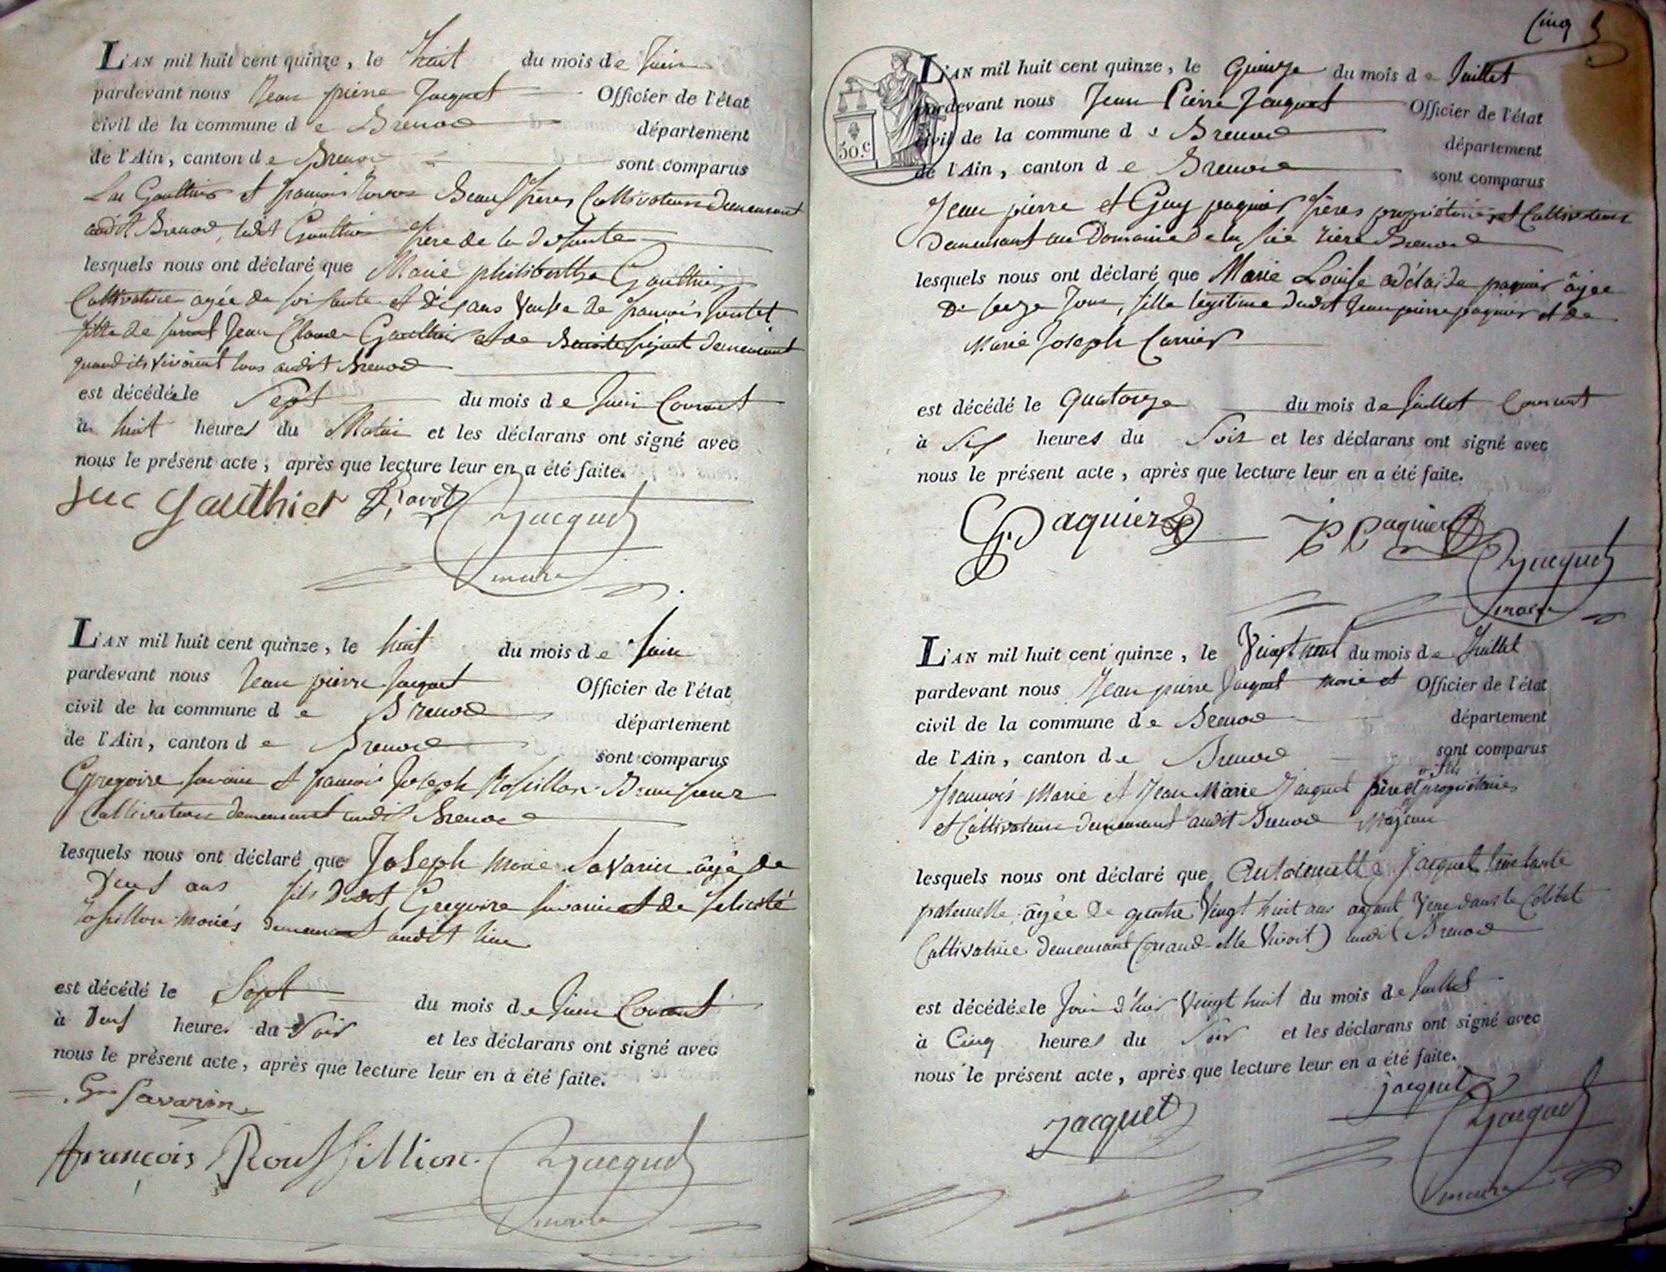 L'AN mil huit cent quinze, le huit du mois de Juin
pardevant nous Jean pierre Jacquet Officier de l'état
civil de la commune de Brenod département
de l'Ain, canton de Brenod sont comparus
Luc Gauthier et françois Beaufrères Cultivateurs demeurant
audit Brenod, ledit Gauthier frère de la défunte
lesquels nous ont déclaré que Marie philiberthe Gauthier
Cultivatrice agée de soisante et Dix ans Veuve de françois
fille de Jean Claude Gauthier et de demeurant
quand ils vivoient tous audit Brenod
est décédée le Sept du mois de Juin Courant
à huit heures du Matin et les déclarans ont signé avec
nous le présent acte, après que lecture leur en a été faite.
Luc Gauthier Jacquet
maire
L'AN mil huit cent quinze, le huit du mois de Juin
pardevant nous Jean pierre Jacquet Officier de l'état
civil de la commune de Brenod département
de l'Ain, canton de Brenod sont comparus
Gregoire Savarin et françois Joseph Rossillon Beaufrere
Cultivateurs demeurant audit Brenod
lesquels nous ont déclaré que Joseph Marie Savarin âgé de
Deux ans fils dudit Gregoire Savarin et de felicité
Rosillon mariés demeurant audit lieu
est décédé le Sept du mois de Juin Courant
à Deux heures du Soir et les déclarans ont signé avec
nous le présent acte, après que lecture leur en a été faite.
Savarin
françois Roussillion Jacquet
maire
Cinq 5
50.c
L'AN mil huit cent quinze, le Quinze du mois de Juillet
pardevant nous Jean Pierre Jacquet Officier de l'état
civil de la commune de Brenod département
de l'Ain, canton de Brenod sont comparus
Jean pierre et Guy paquier frères propriétaires et Cultivateurs
Demeurant au Domaine de la rière Brenod
lesquels nous ont déclaré que Marie Louise adélaide paquier âgée
De Seize Jour, fille légitime dudit Jean pierre paquier et de
Marie Joseph Carrier
est décédé le Quatorze du mois de Juillet Courant
à Six heures du Soir et les déclarans ont signé avec
nous le présent acte, après que lecture leur en a été faite.
G Paquier JP Paquier
Jacquet
maire
L'AN mil huit cent quinze, le Vingt neuf du mois de Juillet
pardevant nous Jean pierre Jacquet maire et Officier de l'état
civil de la commune de Brenod département
de l'Ain, canton de Brenod sont comparus
françois Marie et Jean Marie Jacquet père et fils propriétaires
et Cultivateurs demeurant audit Brenod Majeurs
lesquels nous ont déclaré que Antoinette Jacquet leur tante
paternelle âgée de quatre Vingt huit ans ayant Vécu dans le Célibat
Cultivatrice demeurant (quand elle Vivoit) audit Brenod
est décédée le Jour d'hier Vingt huit du mois de Juillet
à Cinq heures du Soir et les déclarans ont signé avec
nous le présent acte, après que lecture leur en a été faite.
jacquet
Jacquet Jacquet
maire